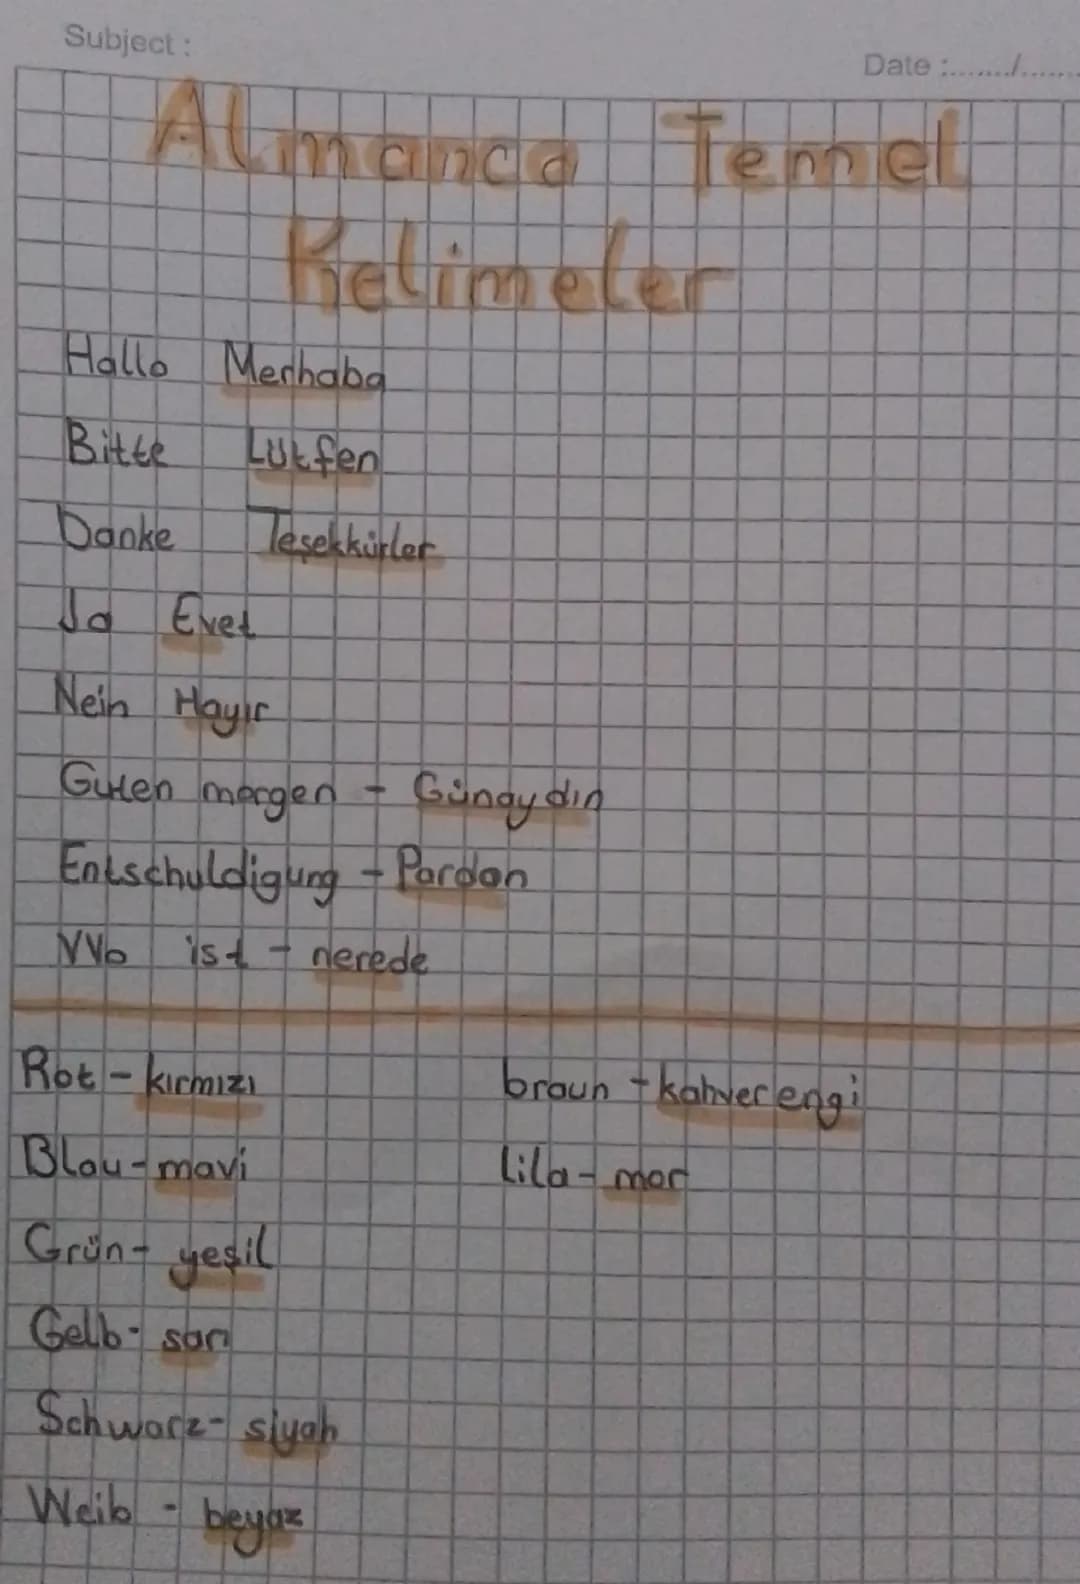 Subject :
Date :......../.......
Almanca Temel
Kelimeler
Hallo Merhaba
Bitte Lütfen
Danke Teşekkürler
Ja Evet
Nein Hayır
Guten morgen - Günaydın
Entschuldigung - Pardon
Wo ist - nerede
Rot - kırmızı
braun - kahverengi
Blau - mavi
lila - mor
Grün - yeşil
Gelb - sarı
Schwarz - siyah
Weib - beyaz